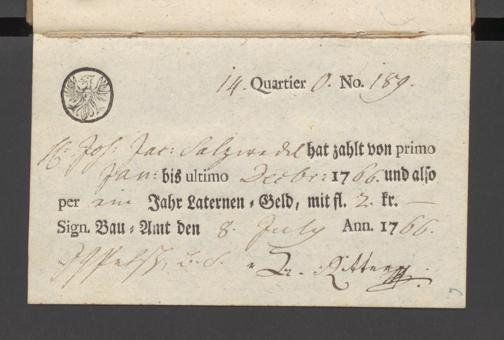 14. Quartier O. No. 189.
H: Joh: Jac: Salzwedel hat zahlt von primo
Jan: bis ultimo Decbr: 1766. und also
per ein Jahr Laternen-Geld, mit fl. 2. kr. —
Sign. Bau-Amt den 8. July Ann. 1766.
Ritter